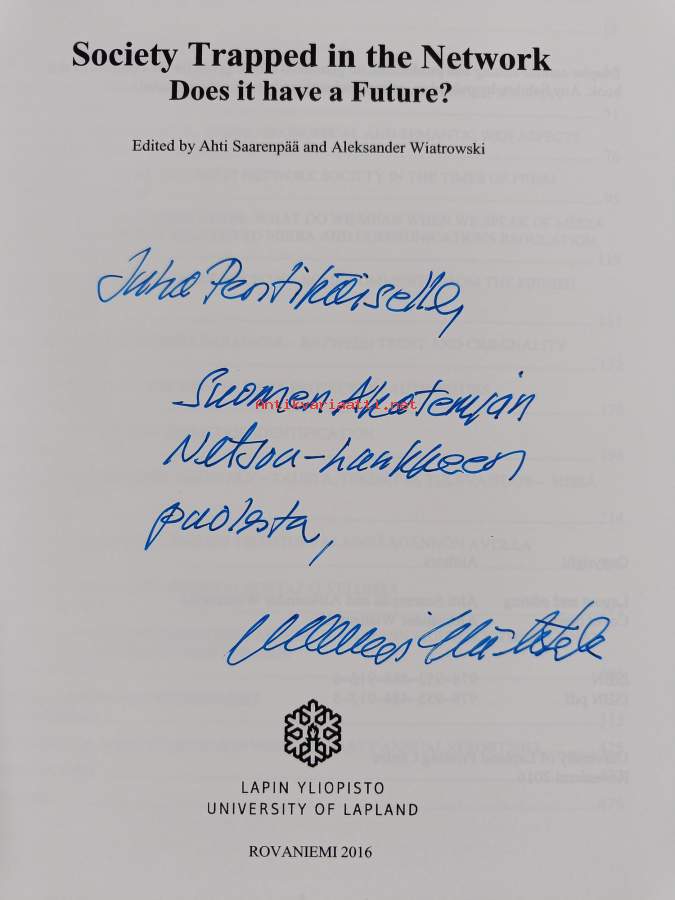 Society Trapped in the Network
Does it have a Future?
Edited by Ahti Saarenpää and Aleksander Wiatrowski
Juha Pentikäiselle,
Suomen Akatemjan
Antikvariaatit.net
Netsou-hankkeen
puolesta,
LAPIN YLIOPISTO
UNIVERSITY OF LAPLAND
ROVANIEMI 2016